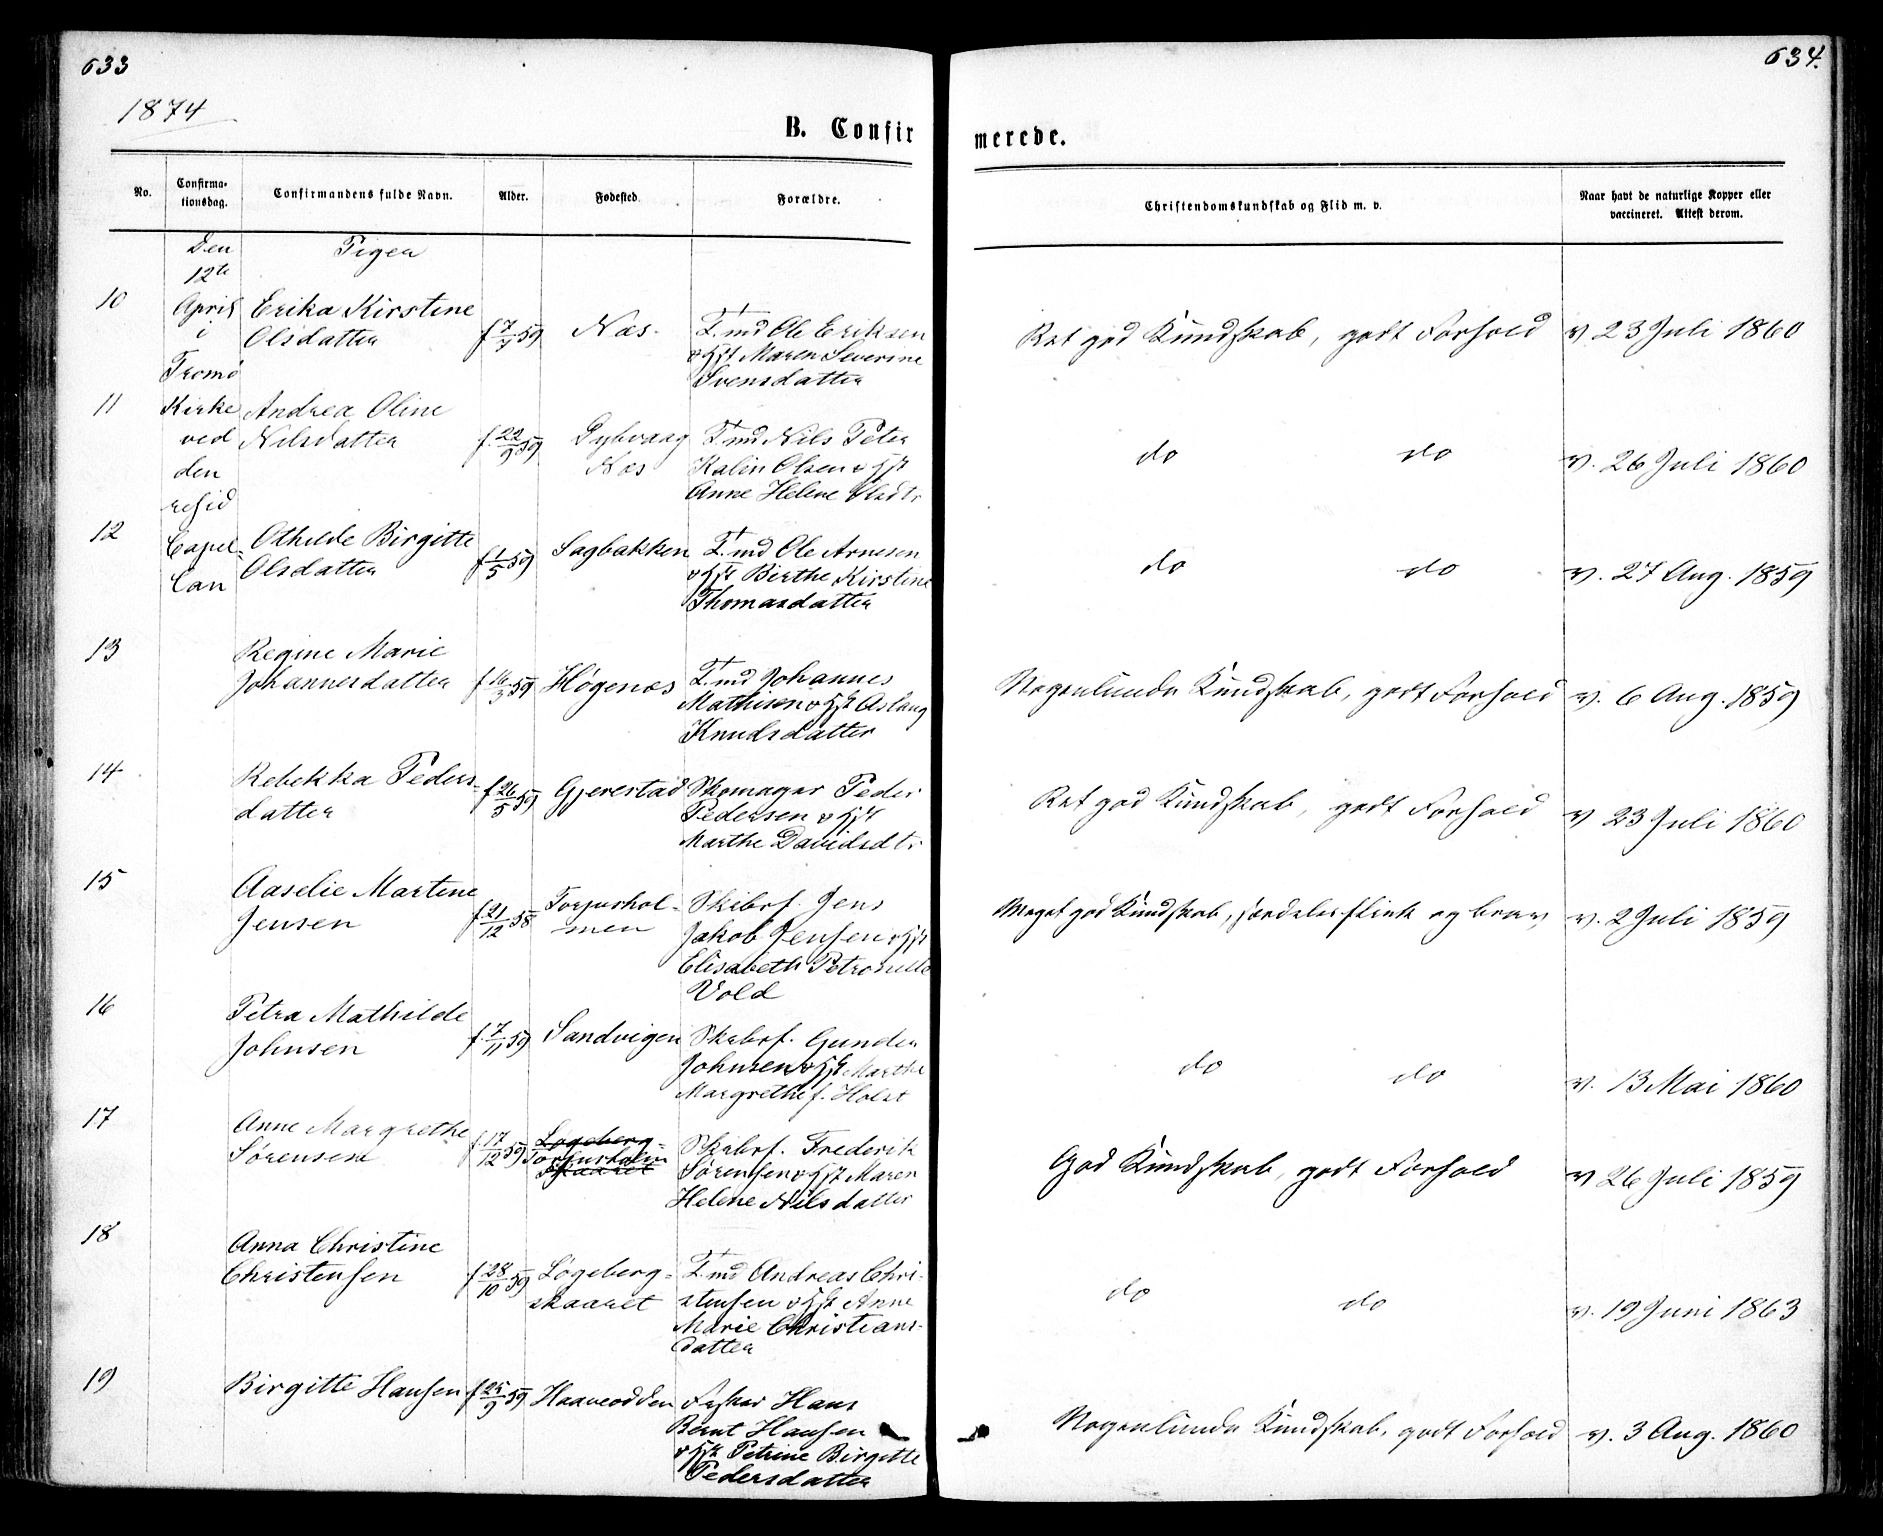 633
634.
1874
B. Confir
merede.
No.
Confirma-
tionsdag.
Confirmandens fulde Navn.
Alder.
Fødested.
Forældre.
Christendomskundskab og Flid m. v.
Naar havt de naturlige Kopper eller
vaccineret. Attest derom.
Den
12te
April
i
Tromø
Kirke
ved
den
resid
Capel-
lan
Piger
10
Erika Kirstine
Olsdatter
f. 7/9 59
Næs.
T. md Ole Eriksen
o Hst Maren Severine
Svensdatter
Ret god Kundskab, godt Forhold
v 23 Juli 1860
11
Andrea Oline
Nilsdatter
f. 22/9 59
Dybvaag
Næs
T. md Nils Peter
Kalin Olsen o Hst
Anne Helene
do do
v. 26 Juli 1860
12
Othilde Birgitte
Olsdatter
f 1/5 59
Sagbakken
T. md Ole Arnesen
o Hst Birthe Kirstine
Thomasdatter
do do
v. 27 Aug. 1859
13
Regine Marie
Johannesdatter
f 16/3 59
Høgenæs
T. md Johannes
Mathisen o Hst Aslaug
Knudsdatter
Nogenlunde Kundskab, godt Forhold
v. 6 Aug. 1859
14
Rebekka Peders-
datter
f 26/5 59
Gjerestad
Skomager Peder
Pedersen o Hst
Marthe Davidsdtr
Ret god Kundskab, godt Forhold
v 23 Juli 1860
15
Aaselie Martine
Jensen
f. 21/12 58
Torjushol-
men
Skibsf. Jens
Jakob Jensen o Hst
Elisabeth Petronelle
Vold
Meget god Kundskab, særdeles flink og brav,
v. 2 Juli 1859
16
Petra Mathilde
Johnsen
f. 7/11 59
Sandvigen
Skibsf. Gunder
Johnsen o Hst Marthe
Margrethe f. Holst
do do
v. 13 Mai 1860
17
Anne Margrethe
Sørensen
f. 17/12 59
Løgeberg-
Torjusholm
skaaret
Skibsf. Frederik
Sørensen o Hst Maren
Helene Nilsdatter
God Kundskab, godt Forhold
v 26 Juli 1859
18
Anna Christine
Christensen
f. 28/10 59
Løgeberg-
skaaret
T. md Andreas Chri-
stensen o Hst Anne
Marie Christians-
datter
do do
v. 19 Juni 1863
19
Birgitte Hansen
f. 25/9 59
Haaveodden
Fisker Hans
Bernt Hansen
o Hst Petrine Birgitte
Pedersdatter
Nogenlunde Kundskab, godt Forhold
v. 3 Aug. 1860